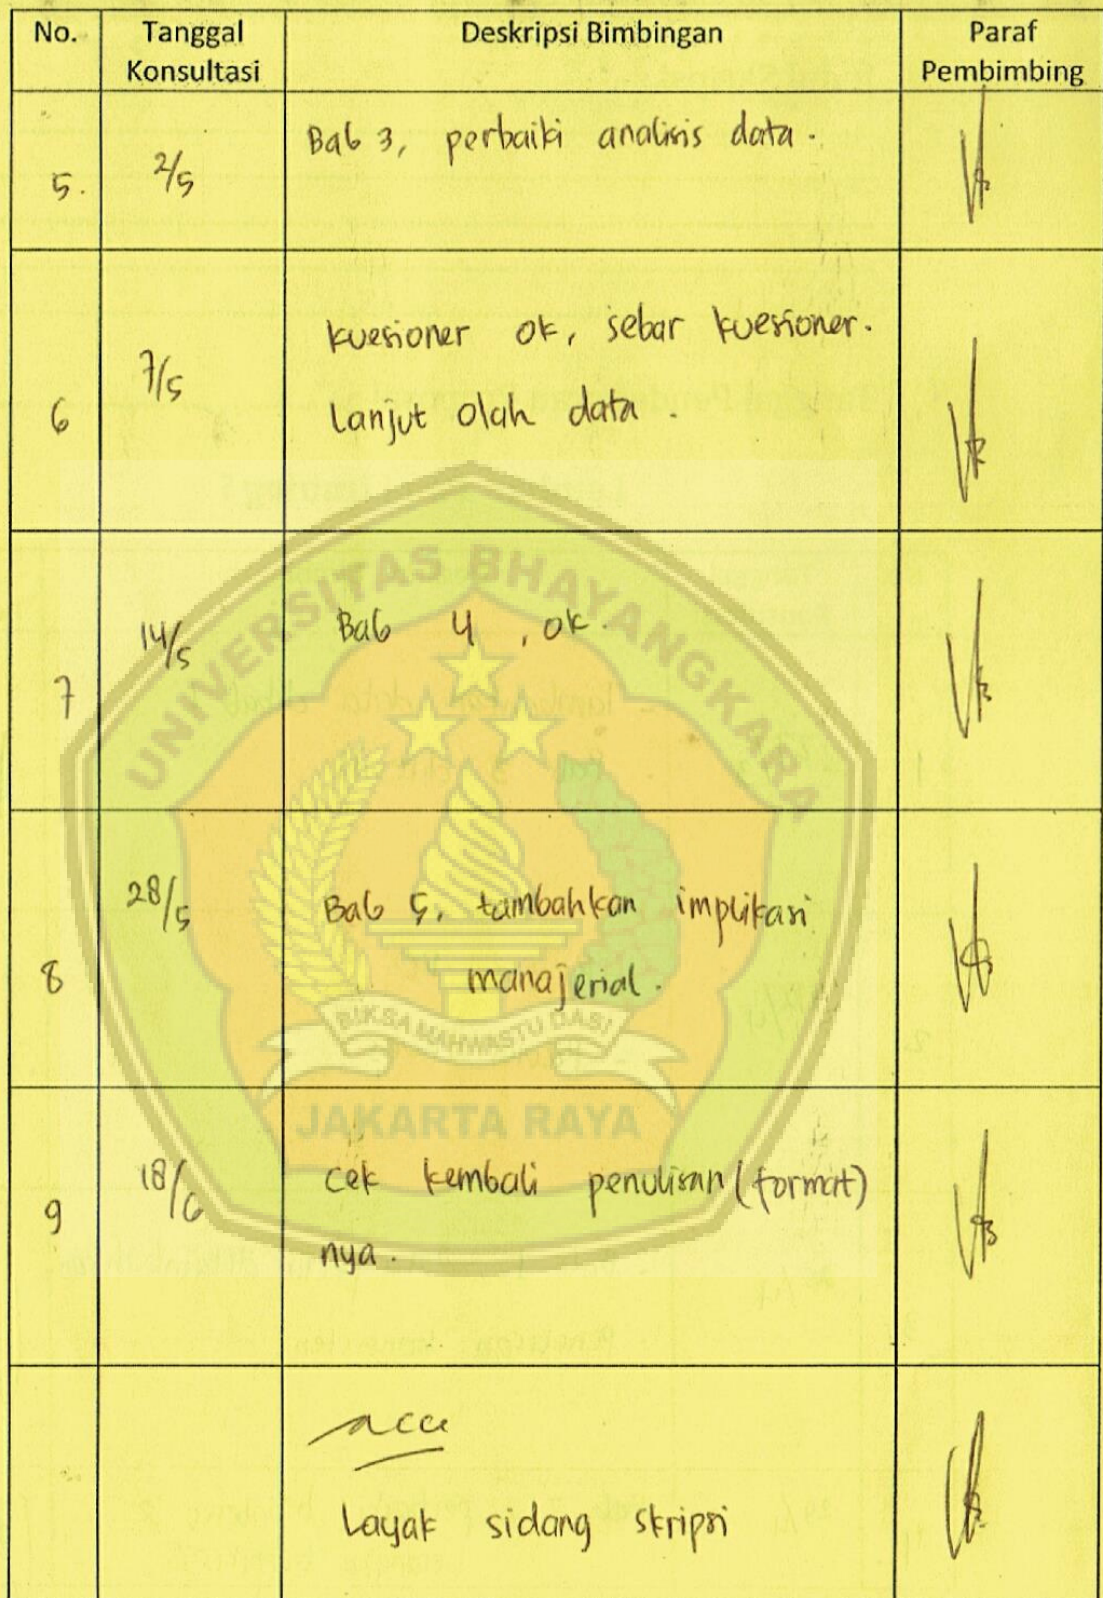 No. Tanggal Konsultasi Deskripsi Bimbingan Paraf Pembimbing
5. 2/5 Bab 3, perbaiki analisis data.
6 7/5 kuesioner ok, sebar kuesioner.
Lanjut olah data.
7 14/5 Bab 4, ok.
8 28/5 Bab 5, tambahkan implikasi
manajerial.
9 18/6 cek kembali penulisan (format)
nya.
acc
Layak sidang skripsi
UNIVERSITAS BHAYANGKARA
BIKSA MAHWASTU DASI
JAKARTA RAYA